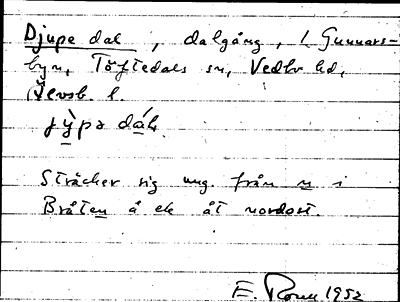 Djupe dal, dalgång, i Gunnars-
byn, Töftedals sn, Vedbo hd,
Älvsb. l.
jỳpə dál.
Sträcker sig ung. från n i
Bråten å ek åt nordost.
E. 1952